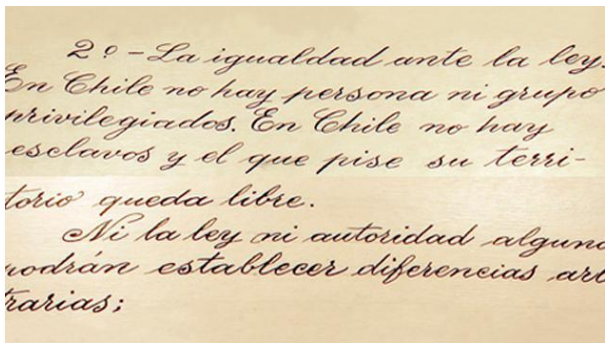 2º - La igualdad ante la ley.
En Chile no hay persona ni grupo
privilegiados. En Chile no hay
esclavos y el que pise su terri-
torio queda libre.
Ni la ley ni autoridad alguna
podrán establecer diferencias arbi
trarias;